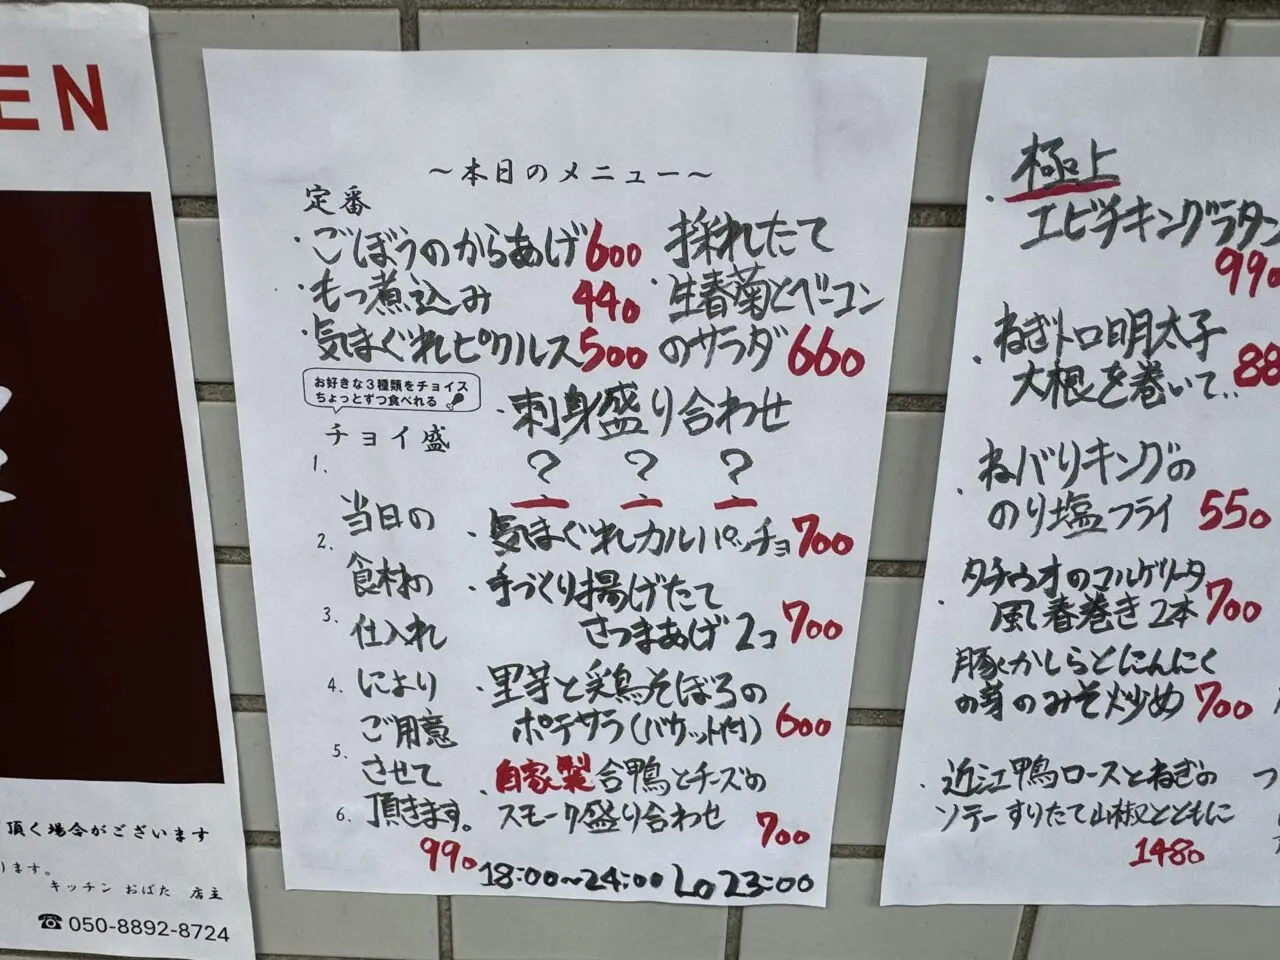 EN
頂く場合がございます
ります。
キッチン おばた 店主
☎050-8892-8724
～本日のメニュー～
定番
・ごぼうのからあげ600
・もつ煮込み 440
・気まぐれピクルス500
お好きな3種類をチョイス
ちょっとずつ食べれる
チョイ盛
1.
当日の
2.
食材の
3.
仕入れ
4.
により
ご用意
5.
させて
6.
頂きます。
990
採れたて
・生春菊とベーコン
のサラダ660
・刺身盛り合わせ
? ? ?
・気まぐれカルパッチョ700
・手づくり揚げたて
さつまあげ2コ 700
・里芋と鶏そぼろの
ポテサラ(バケット付) 600
・自家製合鴨とチーズの
スモーク盛り合わせ 700
18:00～24:00 Lo23:00
極上
・エビチキングラタン
990
・ねぎトロ明太子
大根を巻いて.. 88
・ねバりキングの
のり塩フライ 550
・タチウオのマルゲリータ
風春巻き2本700
豚かしらとにんにく
の芽のみそ炒め 700
・近江鴨ロースとねぎの
ソテーすりたて山椒とともに
1480